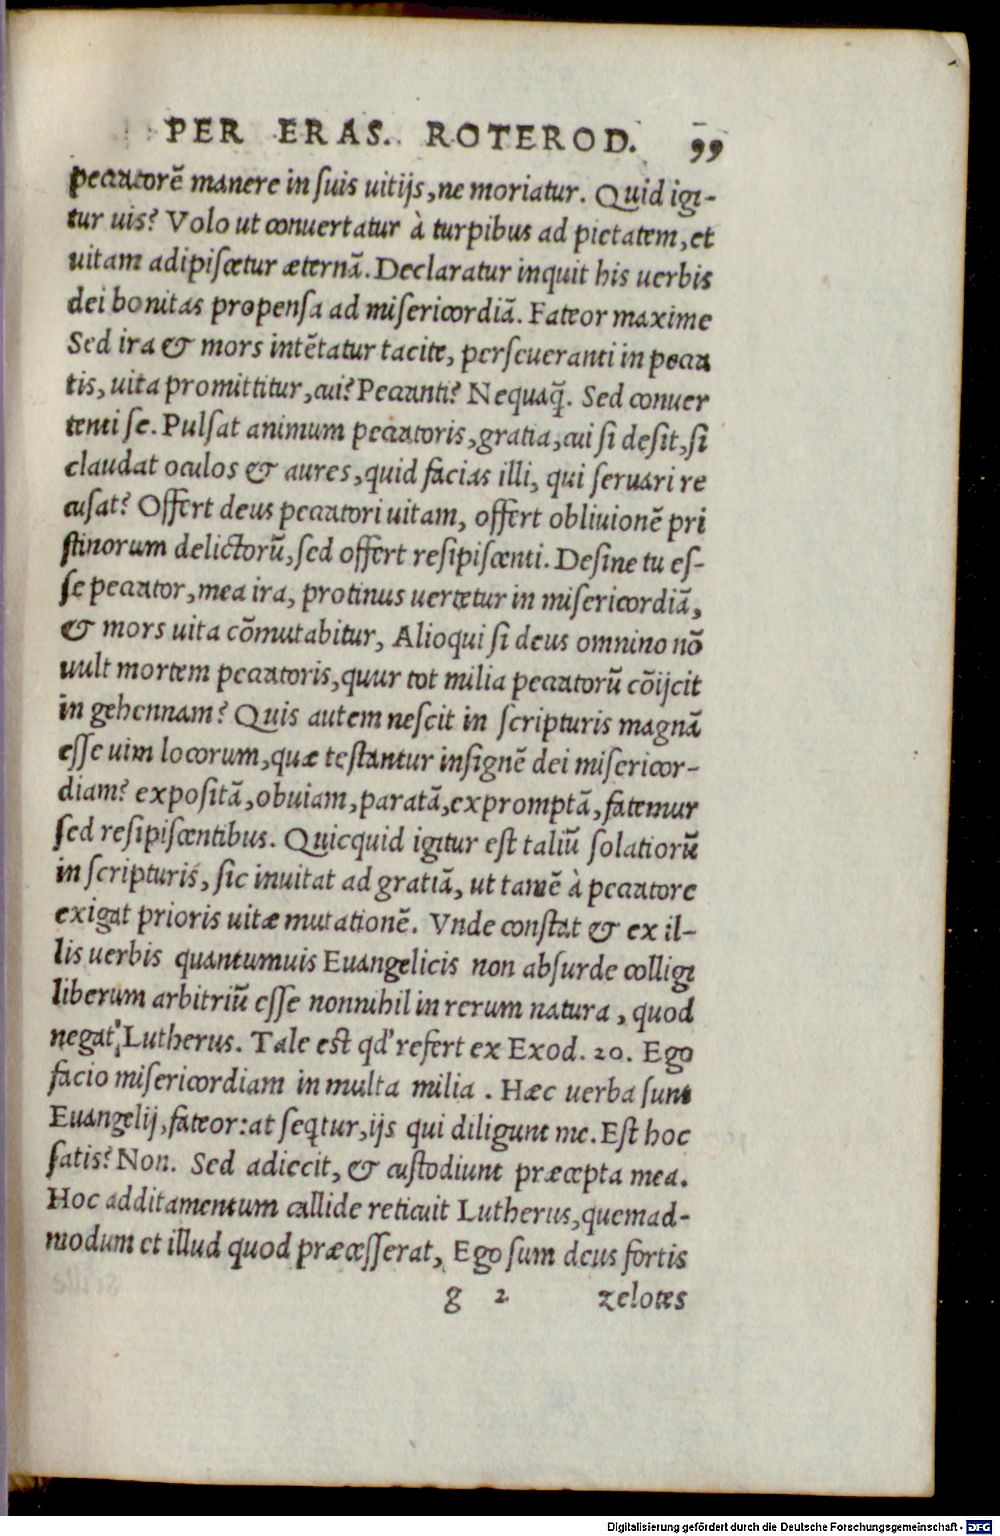 PER ERAS. ROTEROD. 99
peccatorē manere in ſuis uitijs, ne moriatur. Quid igi-
tur uis? Volo ut conuertatur à turpibus ad pietatem, et
uitam adipiſcetur æternā. Declaratur inquit his uerbis
dei bonitas propenſa ad miſericordiā. Fateor maxime
Sed ira & mors intētatur tacite, perſeueranti in pecca
tis, uita promittitur, cui? Peccanti? Nequaq̃. Sed conuer
tenti ſe. Pulſat animum peccatoris, gratia, cui ſi deſit, ſi
claudat oculos & aures, quid facias illi, qui ſeruari re
cuſat? Offert deus peccatori uitam, offert obliuionē pri
ſtinorum delictorū, ſed offert reſipiſcenti. Deſine tu eſ-
ſe peccator, mea ira, protinus uertetur in miſericordiā,
& mors uita cōmutabitur, Alioqui ſi deus omnino nō
uult mortem peccatoris, quur tot milia peccatorū cōijcit
in gehennam? Quis autem neſcit in ſcripturis magnā
eſſe uim locorum, quæ teſtantur inſignē dei miſericor-
diam? expoſitā, obuiam, paratā, expromptā, fatemur
ſed reſipiſcentibus. Quicquid igitur eſt taliū ſolatiorū
in ſcripturis, ſic inuitat ad gratiā, ut tamē à peccatore
exigat prioris uitæ mutationē. Vnde conſtat & ex il-
lis uerbis quantumuis Euangelicis non abſurde colligi
liberum arbitriū eſſe nonnihil in rerum natura, quod
negat Lutherus. Tale eſt qd' refert ex Exod. 20. Ego
facio miſericordiam in multa milia. Hæc uerba ſunt
Euangelij, fateor: at ſeq̃tur, ijs qui diligunt me. Eſt hoc
ſatis? Non. Sed adiecit, & cuſtodiunt præcepta mea.
Hoc additamentum callide reticuit Lutherus, quemad-
modum et illud quod præceſſerat, Ego ſum deus fortis
g 2 zelotes
Digitalisierung gefördert durch die Deutsche Forschungsgemeinschaft - DFG